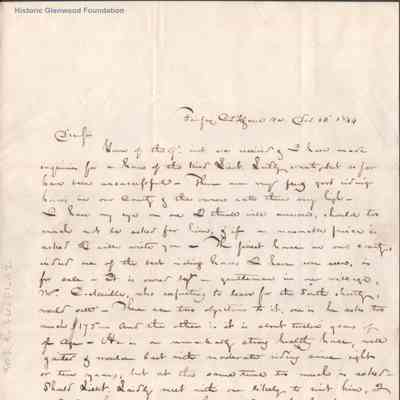 Historic Glenwood Foundation
1844
Dear Sir
Yours of the 9th inst was received & I have made
enquiries for a horse of the kind Lieut. Saidly wants, but so far
have been unsuccessful - There are very few good riding
horses in our County & the owners rate them very high -
I have my eye on one I think will answer, should too
much not be asked for him, & if a reasonable price is
asked I will write you - The finest horse in our county,
indeed one of the best riding horses I have ever seen, is
for sale - It is owned by a gentleman in our village,
Mr. who expecting to leave for the South shortly,
would sell - There are two objections to it, one is he asks too
much $175 - And the other is it is about twelve years
of Age - He is a remarkably strong healthy horse, well
gaited & would last with moderate riding some eight
or ten years, but at the same time too much is asked -
Should Lieut. Saidly meet with one likely to suit him, I